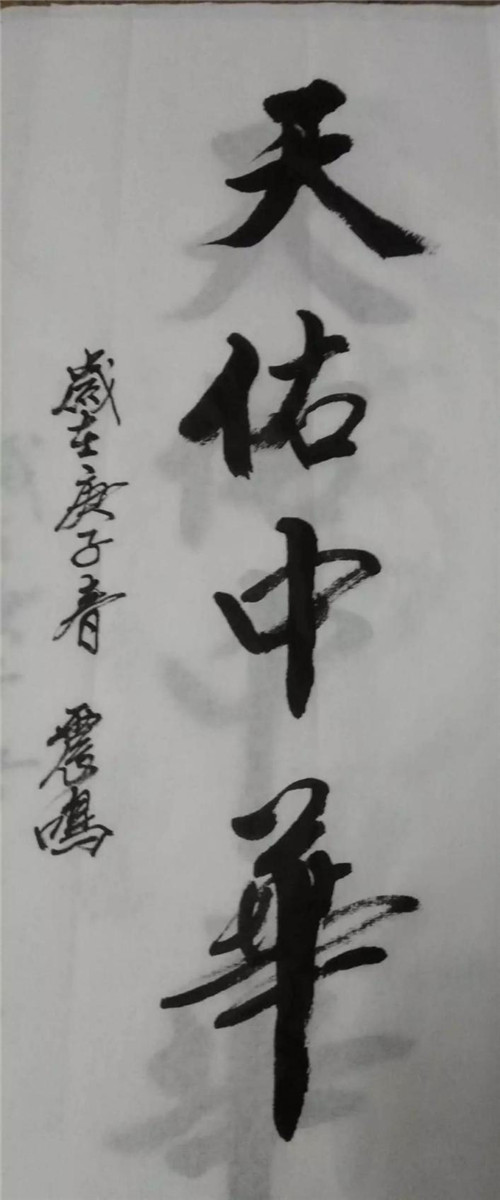 天佑中華
歲在庚子春 震鳴